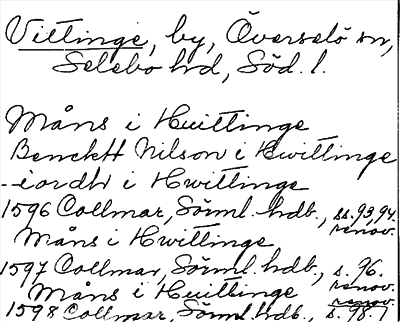 Vittinge, by, Överselö sn,
Selebo hd, Söd. l.
Måns i Huittinge
Bencktt Nilson i Hwittinge
- iordh i Hwittinge
1596 Collmar, Sörml. hdb., ss. 93, 94.
renov.
Måns i Hwittinge
1597 Collmar, Sörml. hdb., s. 96.
renov.
Måns i Huittinge
renov.
1598 Collmar, Sörml. hdb., s. 98.